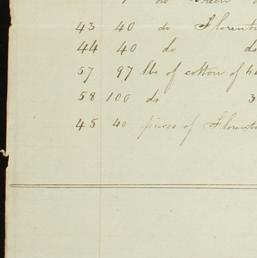 43 40 do Florenti
44 40 do do
57 97 lbs of cotton of
58 100 do 3
45 40 pieces of Florenti